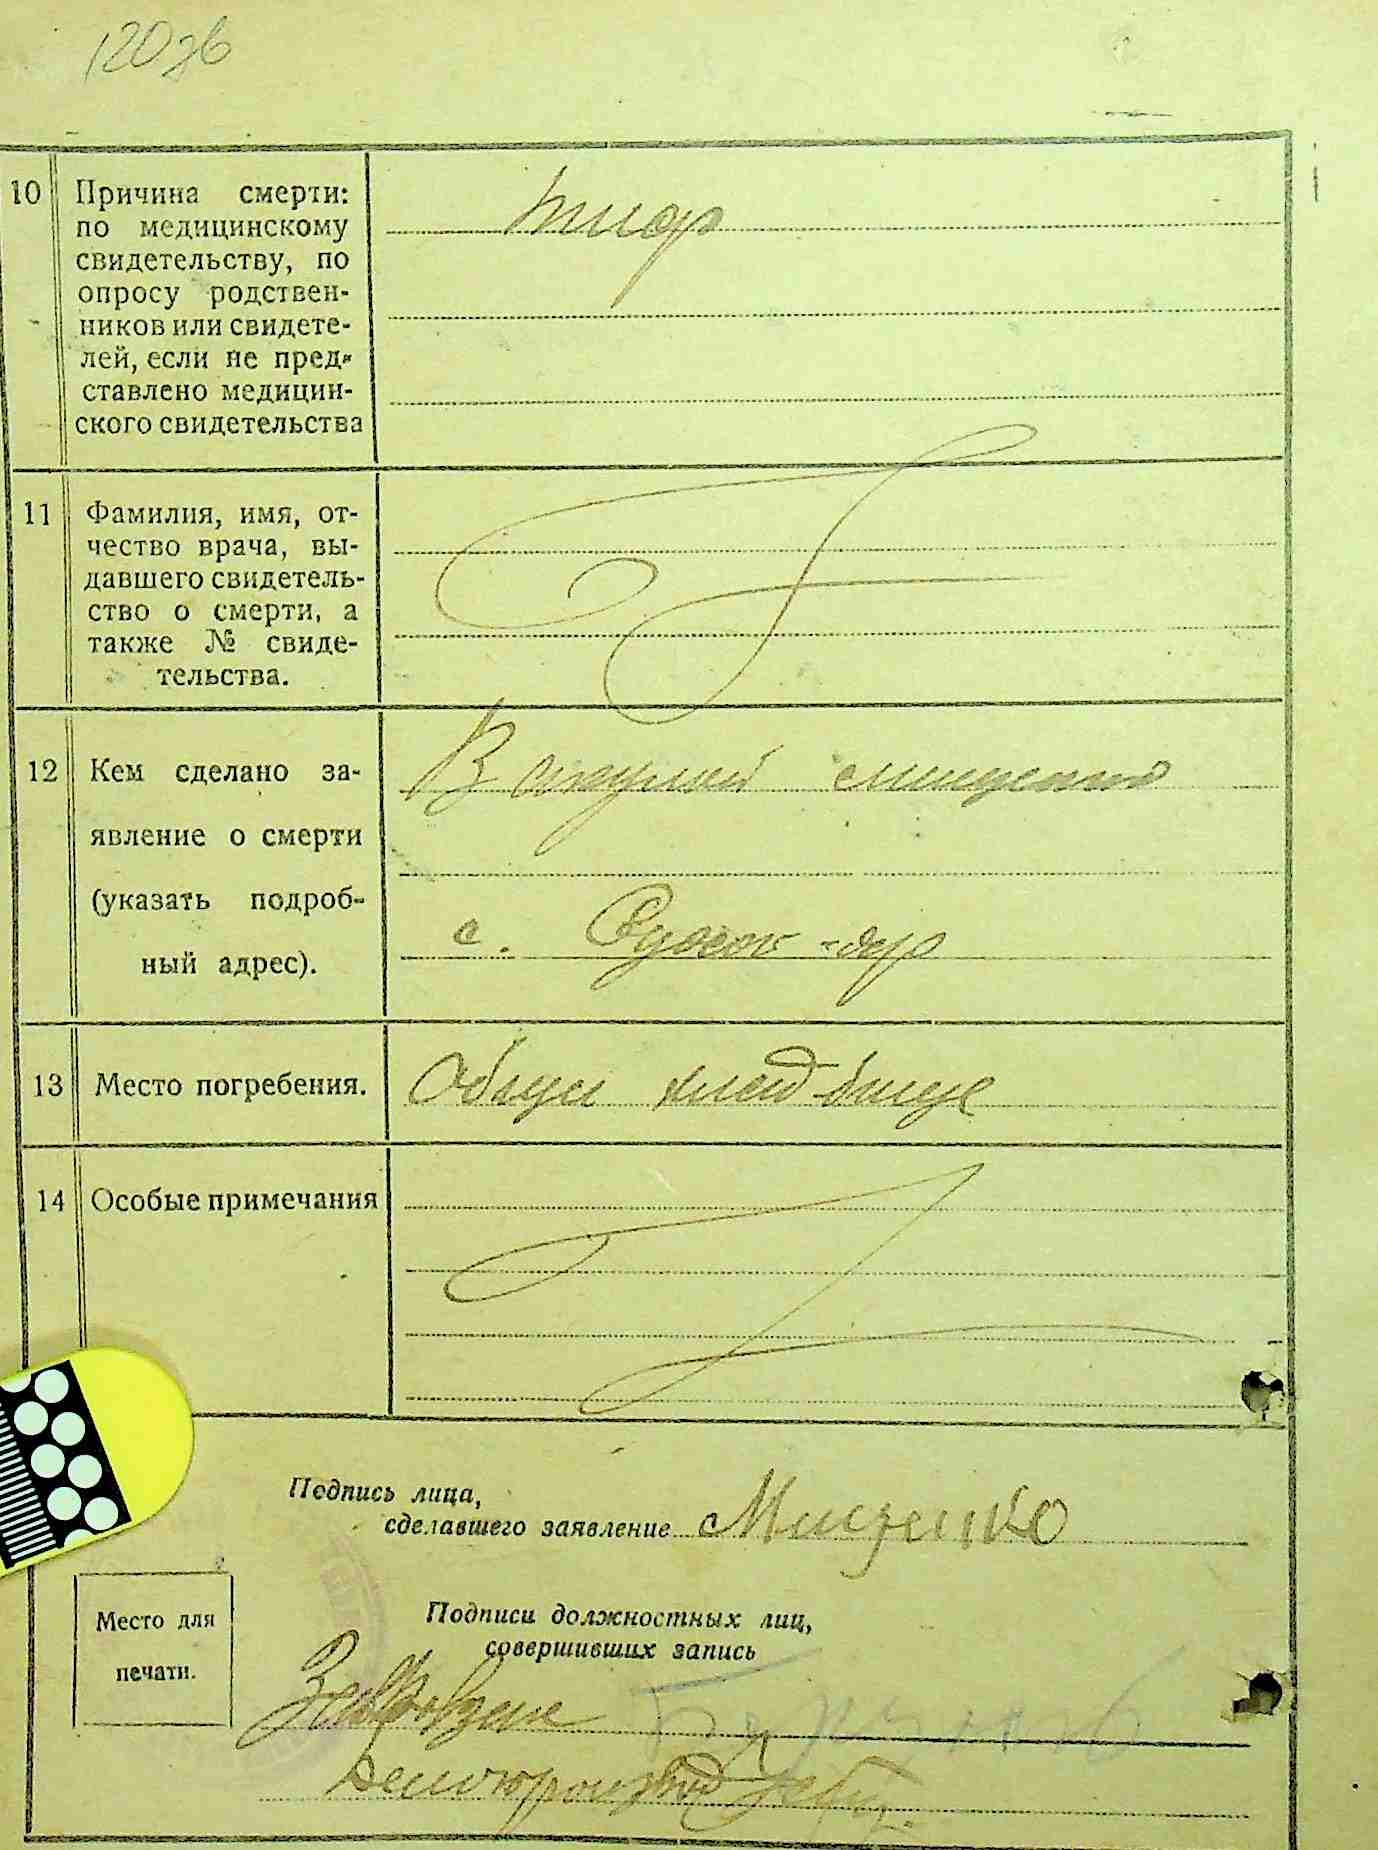 120 зв
10 Причина смерти:
по медицинскому
свидетельству, по
опросу родствен-
ников или свидете-
лей, если не пред-
ставлено медицин-
ского свидетельства
тиф
11 Фамилия, имя, от-
чество врача, вы-
давшего свидетель-
ство о смерти, а
также № свиде-
тельства.
12 Кем сделано за-
явление о смерти
(указать подроб-
ный адрес).
В
с.
13 Место погребения.
14 Особые примечания
Подпись лица,
сделавшего заявление Мищенко
Место для
печати.
Подписи должностных лиц,
совершивших запись